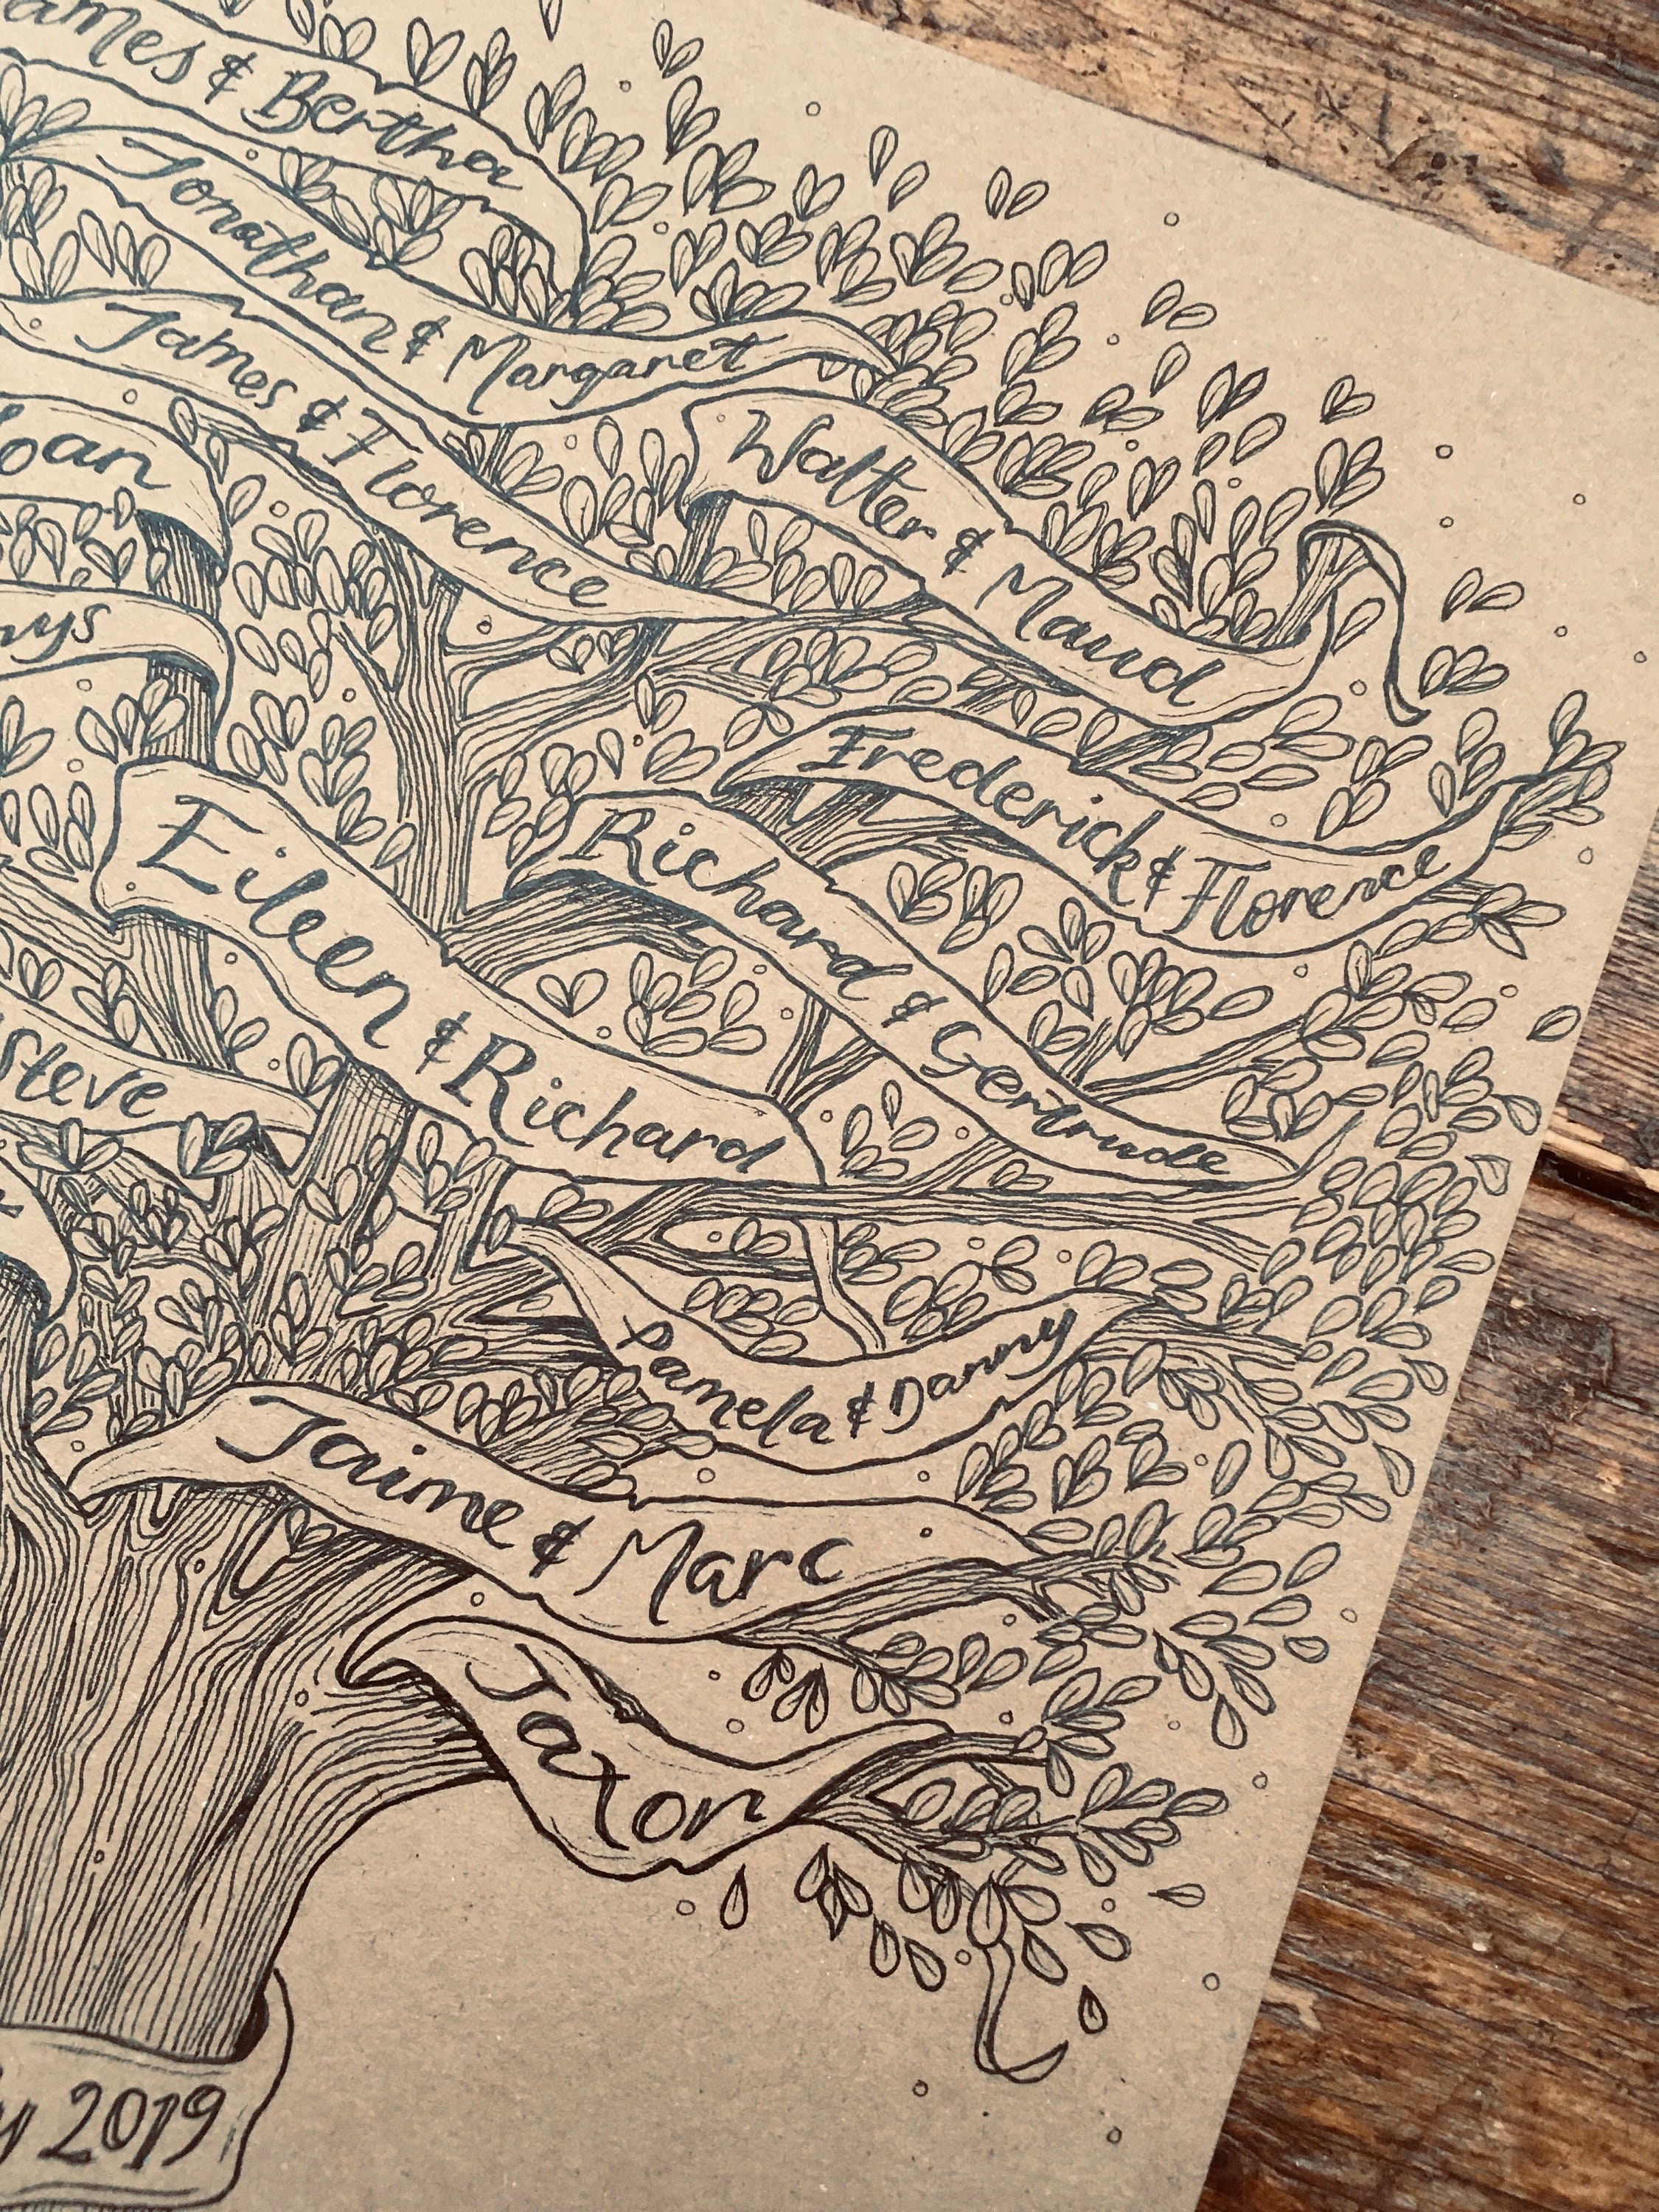 & Bertha
Jonathan & Margaret
James & Florence
Walter & Maud
Frederick & Florence
Richard & Gertrude
Eileen & Richard
Steve
Pamela & Danny
Jaime & Marc
Jaxon
2019